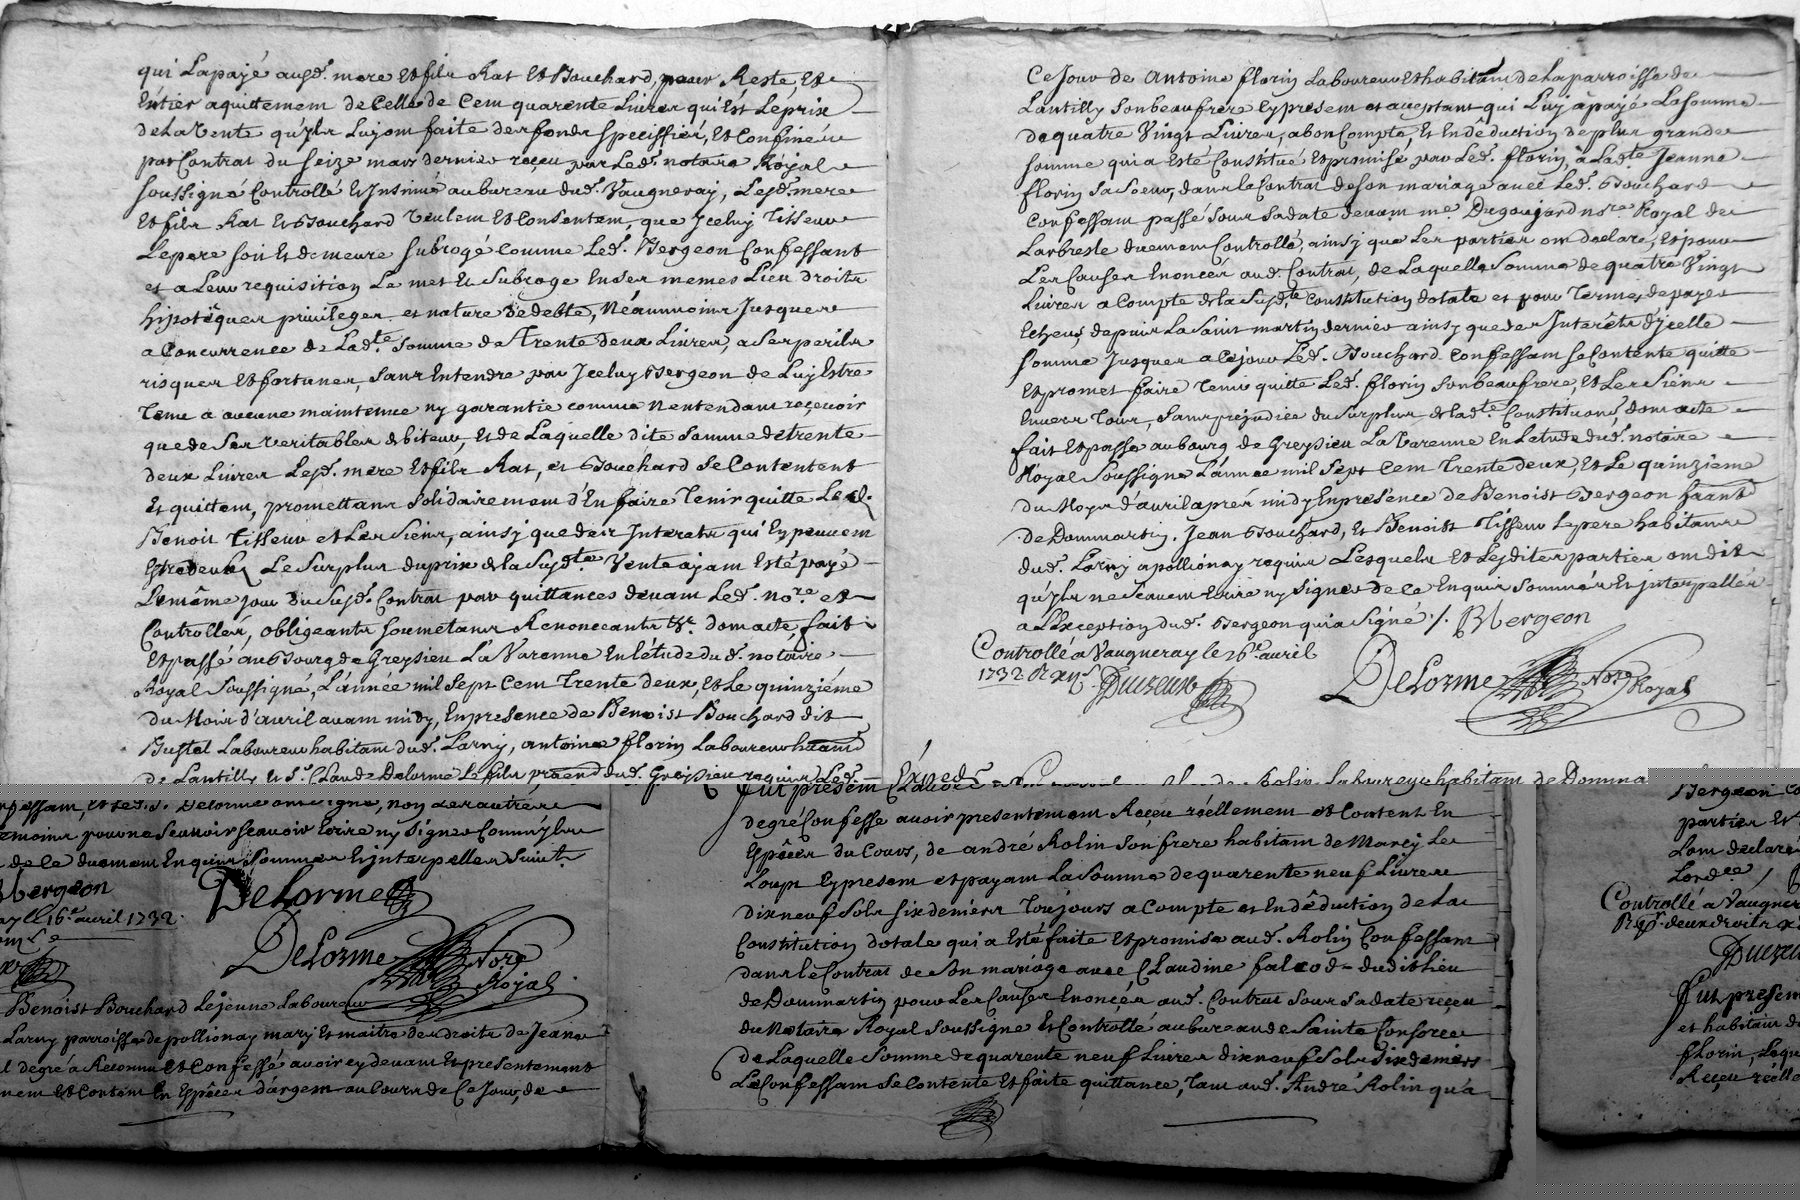 qui La payé ausd. mere Et fils Rat Et Bouchard, pour Reste, Et
Entier aquittement de Celle de Cent quarente Livres qui Est Le prix
de La Vente qu'yls Luy ont faite des fonds speciffiés, Et Confinés
par Contrat du seize mars dernier reçeu par Led. notaire Royal
soussigné Controllé Et Insinué au bureau dud. Vaugneray, Lesd. mere
Et fils Rat Et Bouchard Veulent Et Consentent, que Jceluy Tisseur
Le pere soit Et demeure subrogé comme Led. Bergeon Confessant
et a Leur requisition Le met Et subroge En ses memes Lieu droits
hipotêques privileges et nature de debte, Néanmoins Jusques
a Concurrence de Lad.te somme de Trente deux Livres, a ses perils
risques Et fortunes, sans Entendre par Jceluy Bergeon de Luy Estre
Tenu a aucune maintenue ny garantie comme N'entendant reçevoir
que de ses veritables debiteurs, Et de Laquelle dite somme de trente
deux Livres Lesd. mere Et fils Rat, et Bouchard Se Contentent
Et quittent, promettans solidairement d'En faire Tenir quitte Led.
Benoit Tisseur et Les siens, ainsy que des Interets qui En peuvent
Le surplus du prix de la susd.te Vente ayant Esté payé
Le même jour du susd. Contrat par quittances devant Led. No.re et
Controllées, obligeants soumetans Renonceants &c. dont acte, fait
Et passé au Bourg de Greysieu La Varenne En L'étude dud. notaire
Royal Soussigné, L'année mil sept Cent Trente deux, Et Le quinziéme
du Mois d'avril avant midy, En presence de Benoist Bouchard dit
Laboureur habitant dud. Larny, antoine florin Laboureur
de Lantilly et S.r Claude Delorme Le fils dud. Greysieu requis Led.
Confessant, et Led. S. Delorme ont signé, non Les autres
Temoins pour ne sçavoir Ecrire ny signer Comm'yls
de ce duement Enquis sommes Et jnterpellés
Bergeon
DeLorme
16.e avril 1732.
DeLorme Nore Royal
Benoist Bouchard Lejeune Laboureur
Larny parroisse de pollionay mary Et maitre des droits de Jeanne
de gré a Reconnu Et Confessé avoir cy devant Et presentement
Et Contant En Espêces d'argent au Cours de
Ce Jour de Antoine florin Laboureur Et habitant de La parroisse de
Lantilly son beaufrere Cy present et aceptant qui Luy a payé La somme
de quatre Vingt Livres, a bon Compte Et En déduction de plus grande
somme qui a Esté Constitué Et promise par Led. florin, à Lad.te Jeanne
florin sa soeur, dans Le Contrat de son mariage avec Led. Bouchard
Confessant passé sous sa date devant m.e Dugoujard no.re Royal de
Larbresle duement Controllé, ainsy que Les parties ont declaré, Et pour
Les Causes Enoncées aud. Contrat, de Laquelle somme de quatre Vingt
Livres a Compte de la susd.te Constitution dotale et pour Termes de payer
Echeus depuis La saint martin dernier ainsy que des Interêts d'jcelle
somme Jusques a Ce jour Led. Bouchard Confessant Se Contente quitte
Et promet faire Tenir quitte Led. florin son beaufrere, Et Les siens
Envers Tous, sans préjudice du surplus de lad.te Constitution, dont acte
fait Et passé au bourg de Greysieu La Varenne En L'etude dud. notaire
Royal Soussigné L'année mil sept Cent Trente deux, Et Le quinzieme
du Moys d'avril aprés midy En présence de Benoist Bergeon
de Dommartin. Jean Bouchard, Et Benoist Tisseur Le pere habitans
dud. Larny a pollionay requis Lesquels Et Lesdites parties ont dit
qu'yls ne sçavent Ecrire ny signer de ce Enquis sommés Et jnterpellés
a L'exception dud. Bergeon qui a signé ./. Bergeon
Controllé a Vaugneray le 26.e avril
1732
DeLorme Nore Royal
Fut present Claude Rolin Laboureur habitant de Domma
de gré Confesse avoir presentement Reçeu réellement et Content En
Espêces du Cours, de andré Rolin son frere habitant de Marcy Les
Loups Cy present et payant La somme de quarente neuf Livres
dix neuf sols six deniers Toujours a Compte et En déduction de La
Constitution dotale qui a Esté faite Et promise aud. Rolin Confessant
dans Le Contrat de son mariage avec Claudine falcod dudit Lieu
de Dommartin pour Les Causes Enoncées aud. Contrat sous sa date reçeu
du Notaire Royal soussigné Et Contrôllé au bureau de Sainte Consorce
de Laquelle somme de quarente neuf Livres dix neuf sols six deniers
Le Confessant Se Contente Et faite quittance, Tant aud. André Rolin qu'a
Bergeon
parties Et
Lont declaré
Controllé a Vaugner
deux droits
Fut present
et habitant de
florin, Lequ
Reçeu réelle